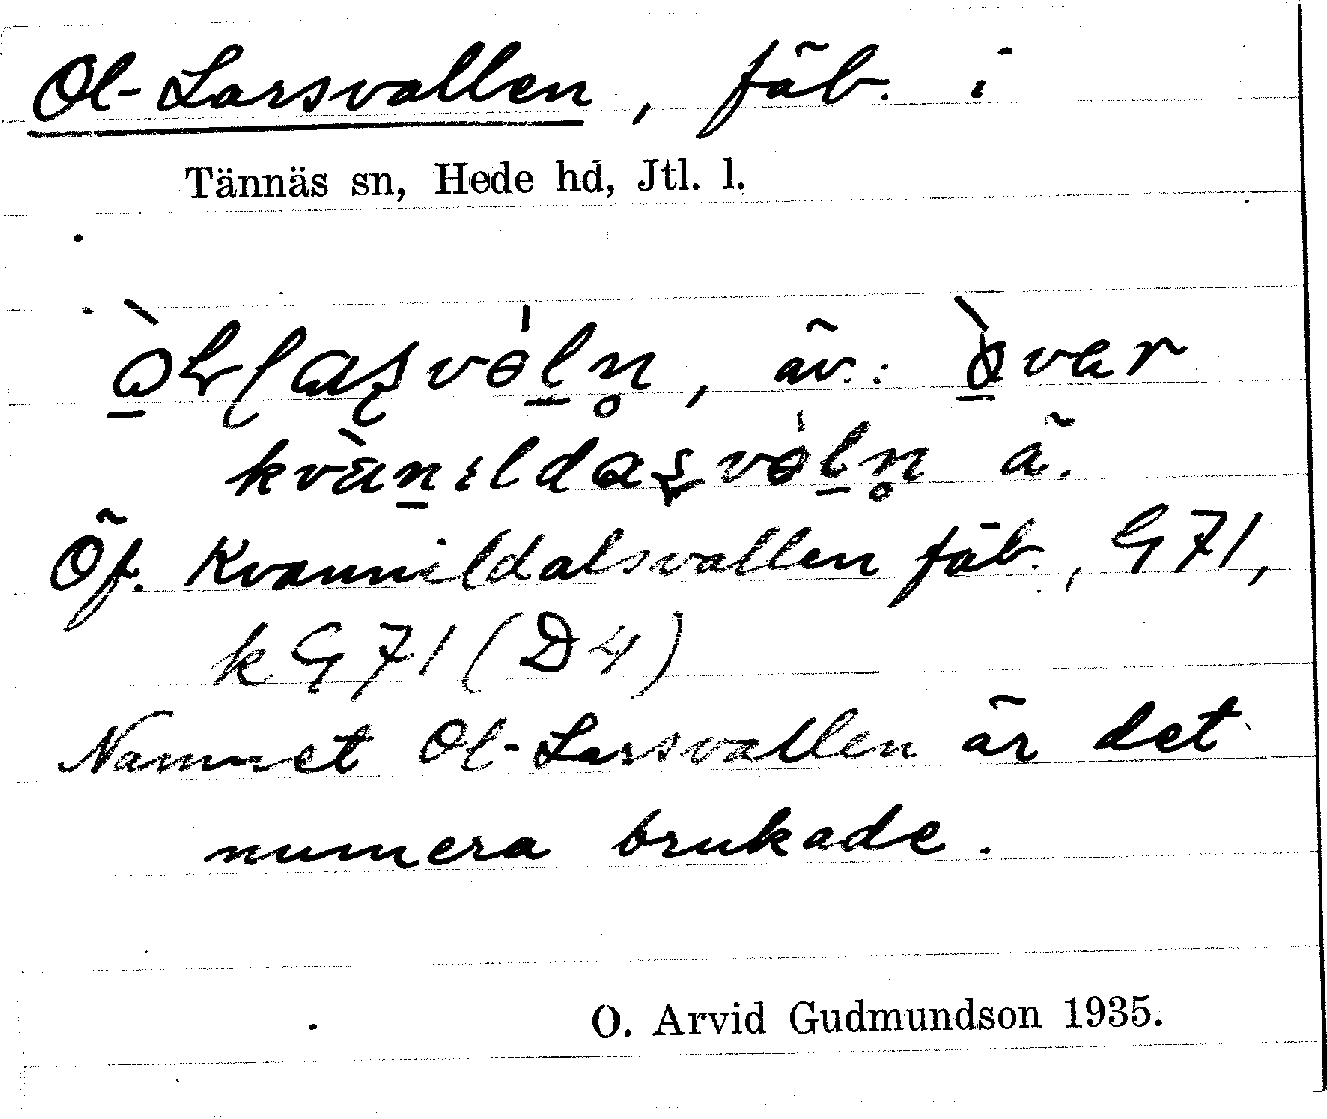 Ol-Larsvallen, fäb. i
Tännäs sn, Hede hd, Jtl. l.
äv.:
ä.
Öf. Kvannildalsvallen fäb., G 71,
k G 71 (D4)
Namnet Ol-Larsvallen är det
numera brukade.
O. Arvid Gudmundson 1935.